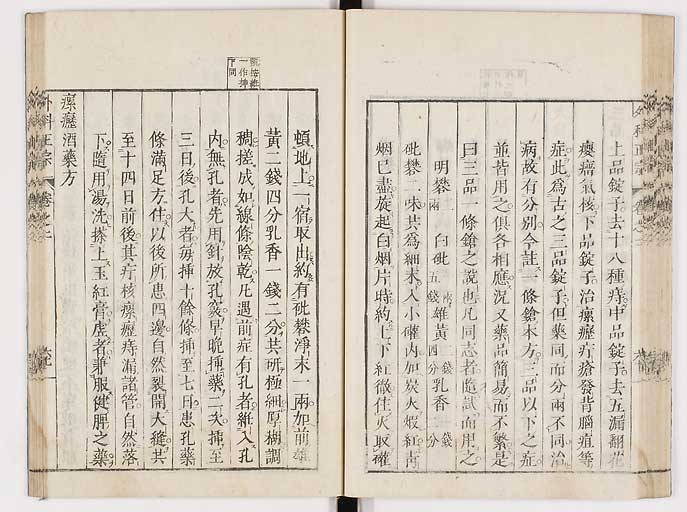 上品錠子去十八種痔中品錠子去五漏翻花
癭瘤氣核下品錠子治瘰癧疔瘡發背腦疽等
症此爲古之三品錠子但藥同而分兩不同治
病故有分別今註一條鎗本方三品以下之症
並皆用之俱各相應況又藥品簡易而不繁是
曰三品一條鎗之說也凡同志者隨試而用之
明礬二兩 白砒一兩五錢 雄黃二錢四分 乳香一錢二分
砒礬二味共爲細末入小確內加炭火煆紅靑
烟已盡旋起白烟片時約上下紅徹住火取確
頓地上一宿取出約有砒礬淨末一兩加前雄
黃二錢四分乳香一錢二分共研極細厚糊調
稠搓成如線條陰乾凡遇前症有孔者維入孔
內無孔者先用針放孔竅早晚挿藥二次挿至
三日後孔大者每挿十餘條挿至七日患孔藥
條滿足方住以後所患四邊自然裂開大縫共
至十四日前後其疔核瘰癧痔漏諸管自然落
下隨用湯洗搽上玉紅膏虛者兼服健脾之藥
瘰癧酒藥方
外科正宗 卷之二
一作挿
下同